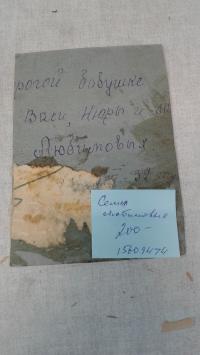 рогой бабушке
Васи, Нюры и
Любимовых
Семья
Любимовых
200-
15609474